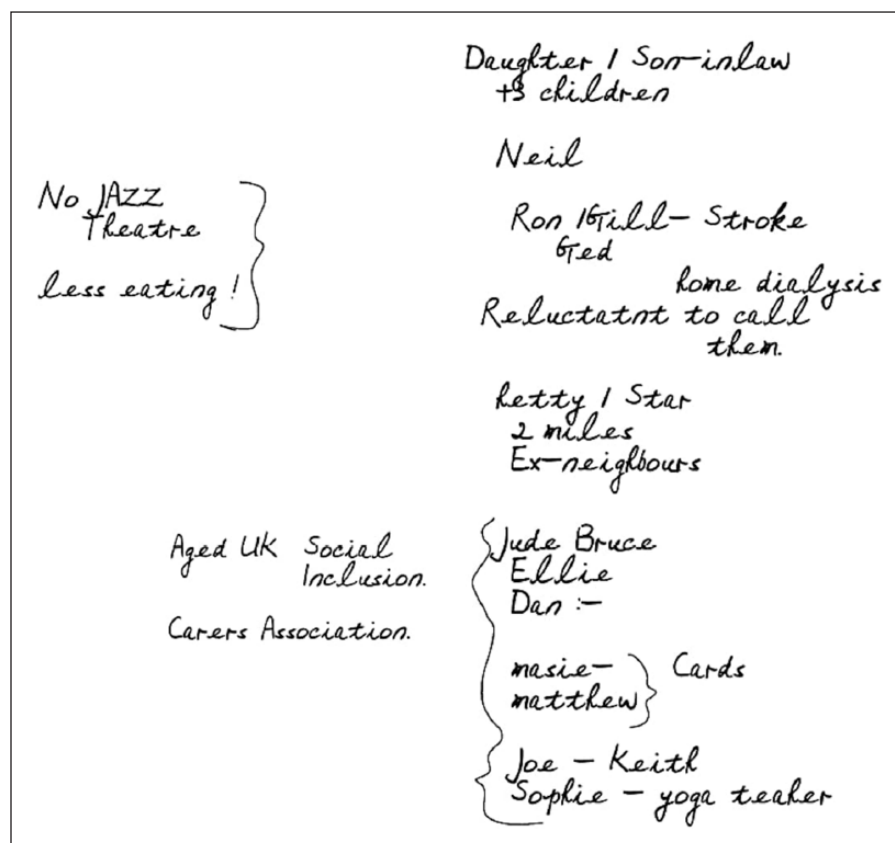 Daughter / Son-inlaw
+3 children
Neil
No JAZZ
Theatre
less eating !
Ron / Gill - Stroke
Ged
home dialysis
Reluctatnt to call
them.
hetty / Star
2 miles
Ex-neighbours
Aged UK Social
Inclusion.
Carers Association.
Jude Bruce
Ellie
Dan :-
masie-
matthew
Cards
Joe - Keith
Sophie - yoga teaher